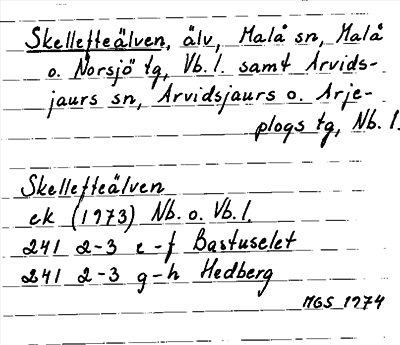 Skellefteälven, älv, Malå sn, Malå
o. Norsjö tg, Vb. l. samt Arvids-
jaurs sn, Arvidsjaurs o. Arje-
plogs tg, Nb. l.
Skellefteälven
ek (1973) Nb. o. Vb. l.
241 2-3 e-f Bastuselet
241 2-3 g-h Hedberg
MGS 1974